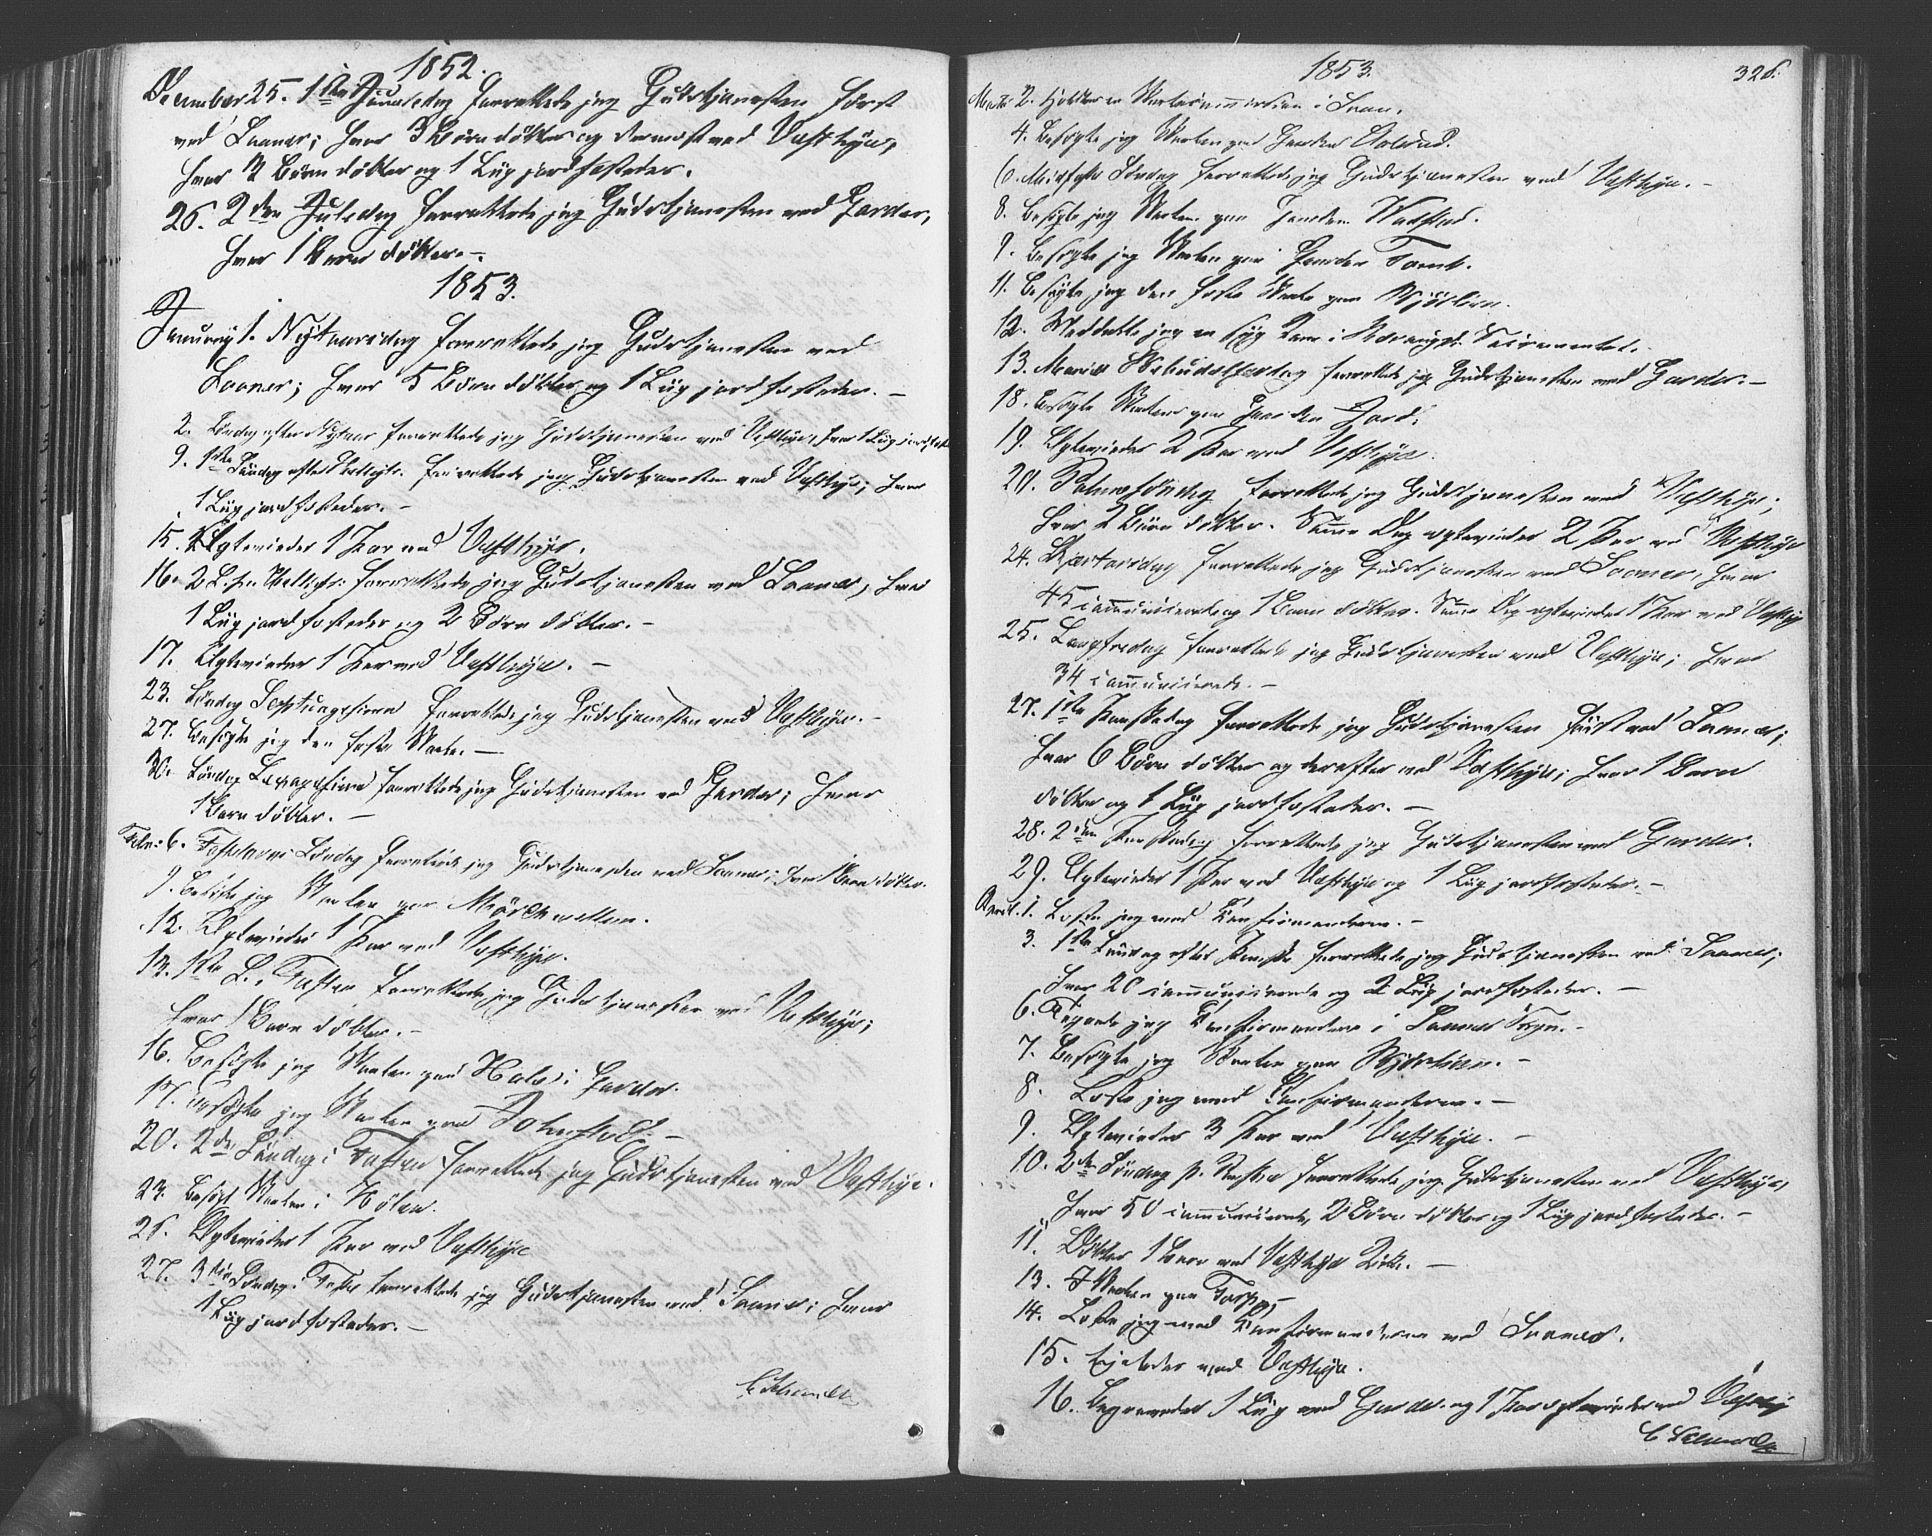 1852.
December 25. 1ste Juledag forrettede jeg Gudstjenesten først
ved Saaner; hvor 3 Børn døbtes og dernæst ved Vestbye,
hvor 2 Børn døbtes og 1 Liig jordfæstedes.
26. 2den Juledag forrettede jeg Gudstjenesten ved Garder,
hvor 1 Barn døbtes.-
1853.
Januar 1. Nytaarsdag forrettede jeg Gudstjenesten ved
Saaner; hvor 5 Børn døbtes og 1 Liig jordfæstedes. -
2. Søndag efter Nytaar forrettede jeg Gudstjenesten ved Vestbye, hvor 1 Liig
9. 1ste Søndag efter forrettede jeg Gudstjenesten ved Vestbye; hvor
1 Liig jordfæstedes. -
15. Ægteviedes 1 Par ved Vestbye.
16. 2 S. forrettede jeg Gudstjenesten ved Saaner; hvor
1 Liig jordfæstedes og 2 Børn døbtes. -
17. Ægteviedes 1 Par ved Vestbye. -
23. Søndag Septuagesima forrettede jeg Gudstjenesten ved Vestbye. -
27. Besøgte jeg den faste Skole. -
30. Søndag Sexagesima forrettede jeg Gudstjenesten ved Garder; hvor
1 Barn døbtes. -
Febr: 6. Fastelavns Søndag forrettede jeg Gudstjenesten ved Saaner; hvor 1 Barn døbtes.
9. Besøgte jeg Skolen paa
12. Ægteviedes 1 Par ved Vestbye.
13. 1ste S. i Fasten forrettede jeg Gudstjenesten ved Vestbye;
hvor 1 Barn døbtes. -
16. Besøgte jeg Skolen paa i Garder.
17. Besøgte jeg Skolen paa
20. 2den Søndag i Fasten forrettede jeg Gudstjenesten ved Vestbye.
23. Besøgt Skolen i Hølen.
26. Ægteviedes 1 Par ved Vestbye
27. 3die Søndag i Fasten forrettede jeg Gudstjenesten ved Saaner; hvor
1 Liig jordfæstedes. -
1853.
326.
Marts 2. Holdtes en Skolecommission i Soon.
4. Besøgte jeg Skolen paa Gaarden
6. Midfaste Søndag forrettede jeg Gudstjenesten ved Vestbye. -
8. Besøgte jeg Skolen paa Gaarden
9. Besøgte jeg Skolen paa Gaarden
11. Besøgte jeg den faste Skole paa
12. Meddeelte jeg en syg Kone i Sacramentet.
13. Mariæ Bebudelsesdag forrettede jeg Gudstjenesten ved Garder. -
18. Besøgte Skolen paa Gaarden
19. Ægteviedes 2 Par ved Vestbye.
20. Palmesøndag forrettede jeg Gudstjenesten ved Vestbye;
hvor 2 Børn døbtes. Samme Dag ægteviedes 2 Par ved Vestbye
24. Skjærtorsdag forrettede jeg Gudstjenesten ved Saaner; hvor
45 communicerede og 1 Barn døbtes. Samme Dag ægteviedes 1 Par ved Vestby
25. Langfredag forrettede jeg Gudstjenesten ved Vestbye; hvor
34 communicerede. -
27. 1ste Paaskedag forrettede jeg Gudstjenesten først ved Saaner;
hvor 6 Børn døbtes og derefter ved Vestbye; hvor 1 Barn
døbtes og 1 Liig jordfæstedes. -
28. 2den Paaskedag forrettede jeg Gudstjenesten ved Garder.
29. Ægteviedes 1 Par ved Vestbye og 1 Liig jordfæstedes. -
April. 1. Læste jeg med Confirmanderne. -
3. 1ste Søndag efter Paaske forrettede jeg Gudstjenesten ved Saaner;
hvor 20 communicerede og 2 Liig jordfæstedes. -
6. jeg Confirmanderne i Saaner Sogn. -
7. Besøgte jeg Skolen paa
8. Læste jeg med Confirmanderne. -
9. Ægteviedes 3 Par ved Vestbye. -
10. 2den Søndag p. Paaske forrettede jeg Gudstjenesten ved Vestbye,
hvor 50 communicerede, 2 Børn døbtes og 1 Liig jordfæstedes. -
11. Døbtes 1 Barn ved Vestbye Kirke. -
13. Skolen paa
14. Læste jeg med Confirmanderne ved Saaner.
15. ligeledes ved Vestbye.
16. Begravedes 1 Liig ved Garder og 1 Par ægteviedes ved Vestby